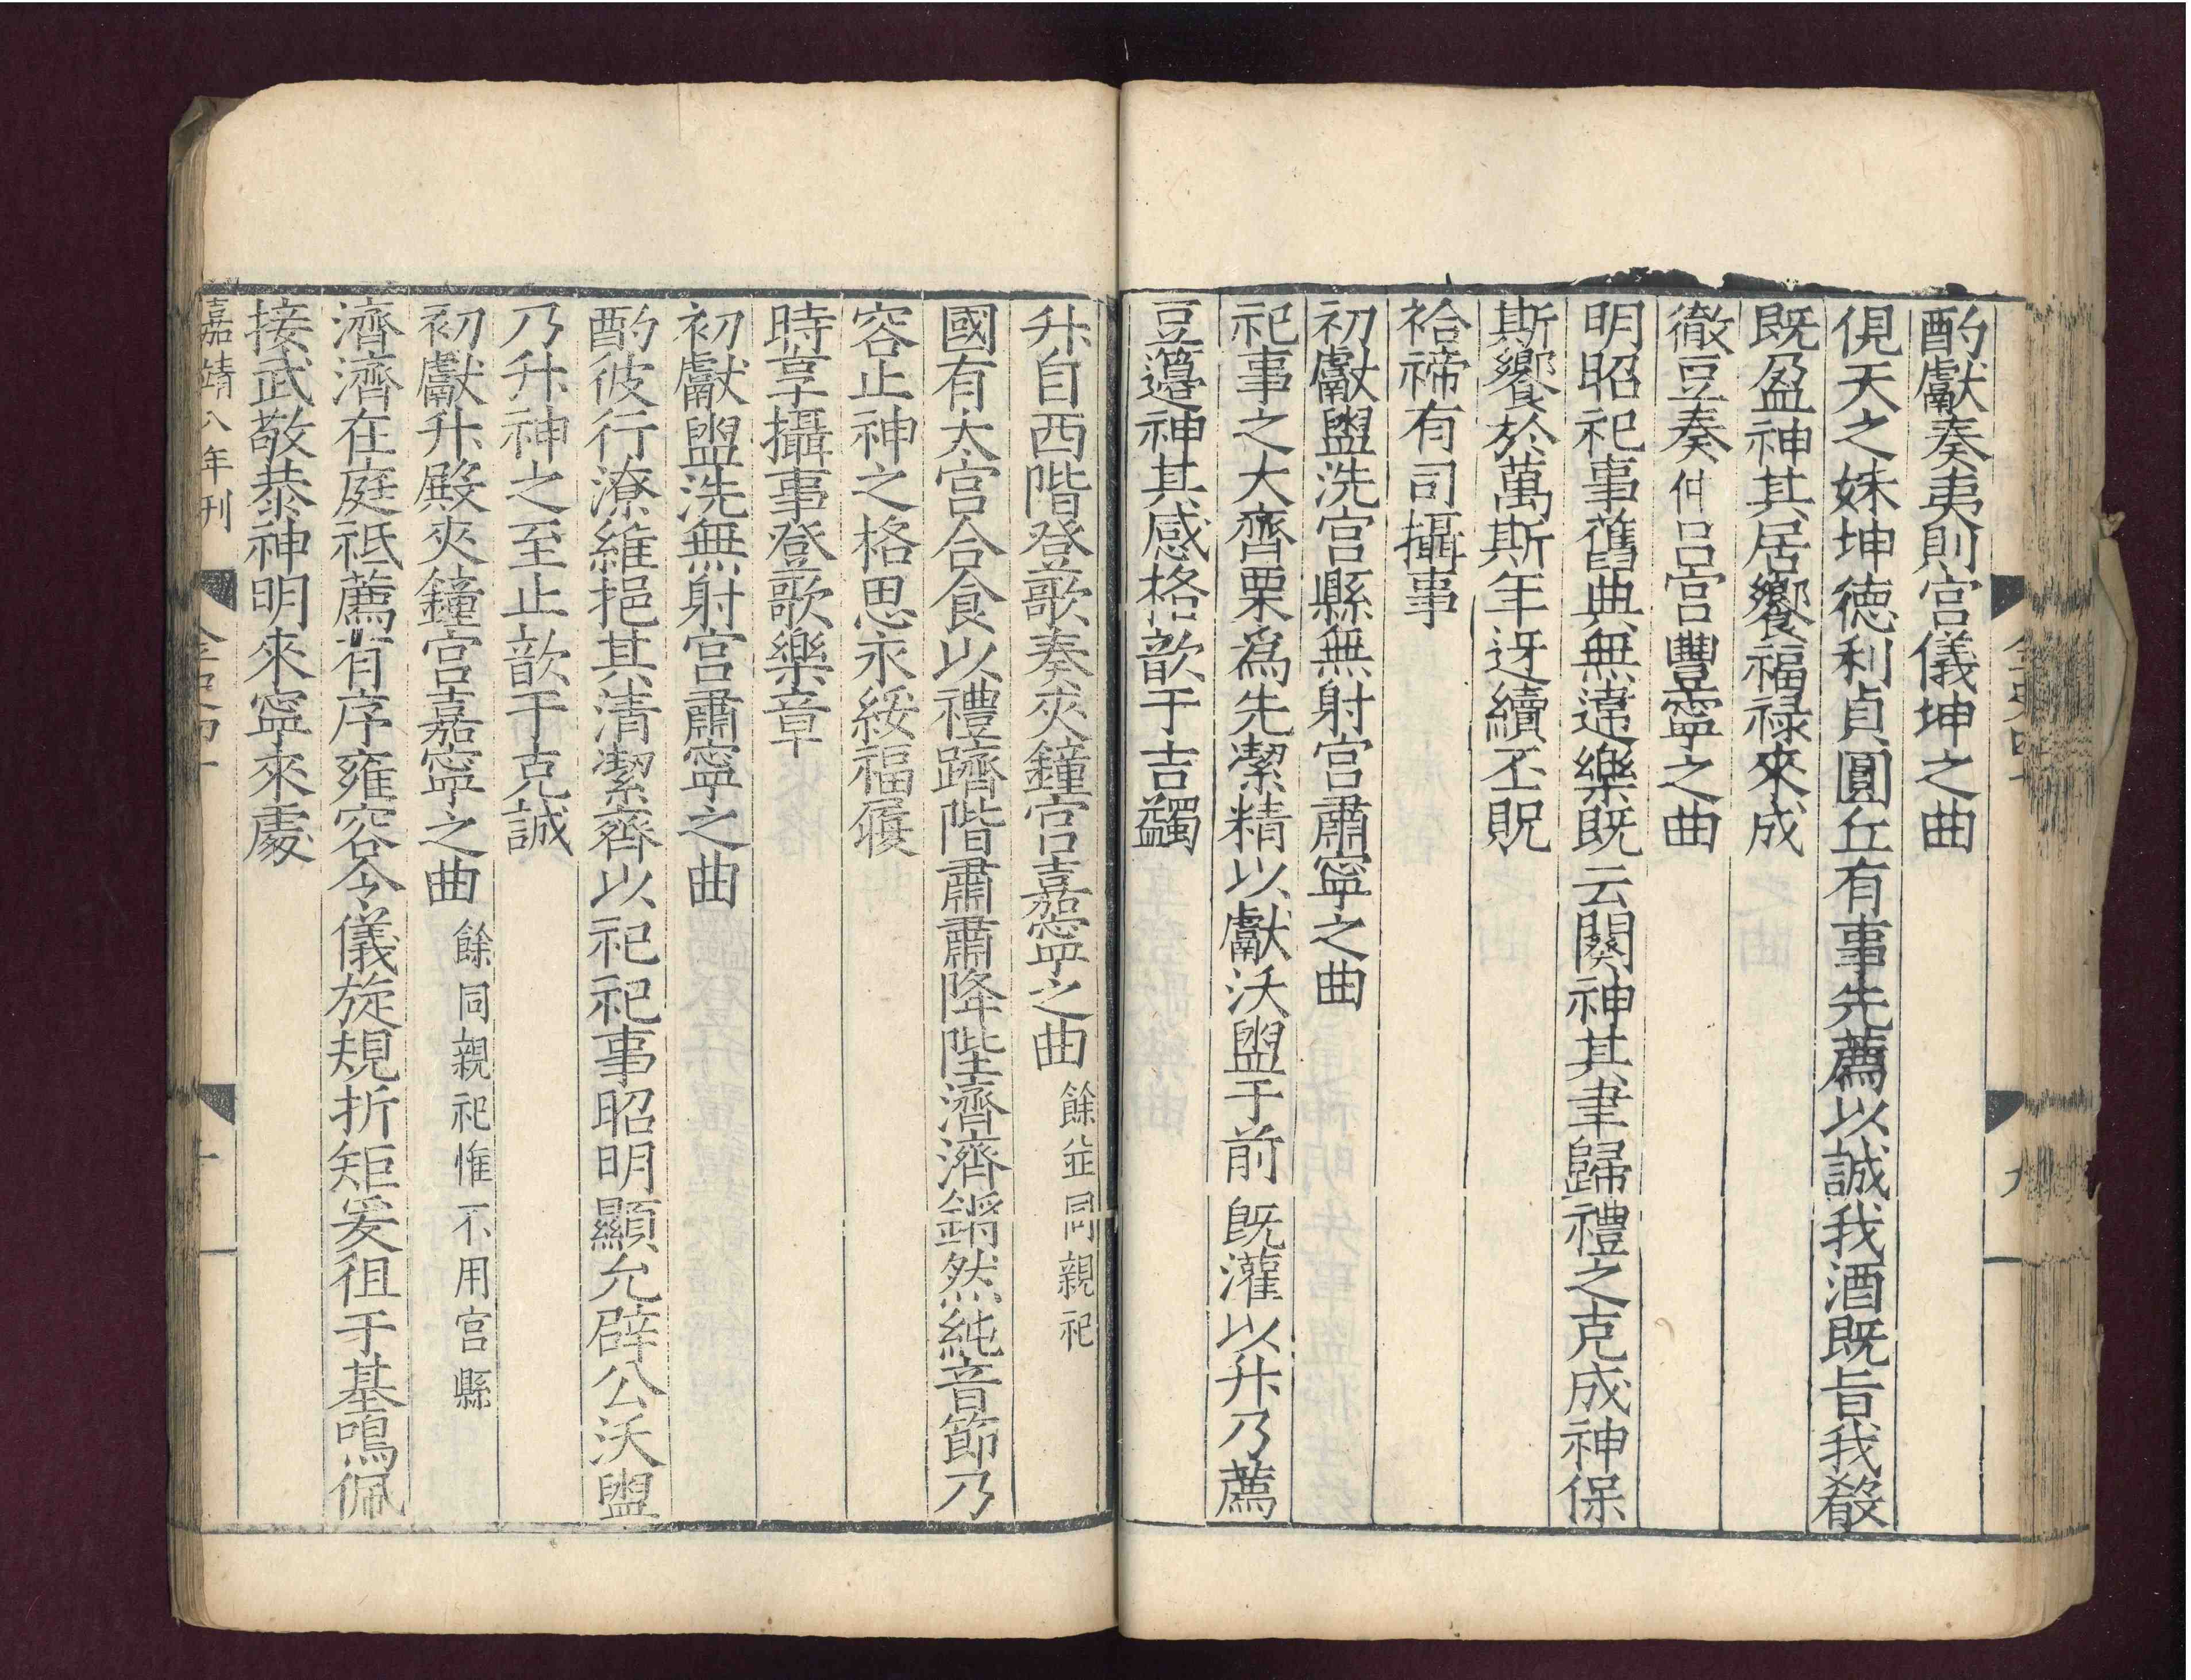 酌獻奏夷則宮儀坤之曲
俔天之妹坤徳利貞圓丘有事先薦以誠我酒既旨我殽
既盈神其居饗福禄來成
徹豆奏仲呂宮豐寧之曲
明昭祀事舊典無違樂既云闋神其聿歸禮之克成神保
斯饗於萬斯年迓續丕貺
祫禘有司攝事
初獻盥洗宮縣無射宮肅寧之曲
祀事之大齊栗爲先潔精以獻沃盥于前既灌以升乃薦
豆籩神其感格歆于吉蠲
升自西階登歌奏夾鐘宮嘉寧之曲餘並同親祀
國有太宮合食以禮躋階肅肅降陛濟濟鏘然純音節乃
容止神之格思永綏福履
時享攝事登歌樂章
初獻盥洗無射宮肅寧之曲
酌彼行潦維挹其清潔齊以祀祀事昭明顯允辟公沃盥
乃升神之至止歆于克誠
初獻升殿夾鐘宮嘉寧之曲餘同親祀惟不用宮縣
濟濟在庭祗薦有序雍容令儀旋規折矩爰徂于基鳴佩
接武敬恭神明來寧來處
嘉靖八年刊